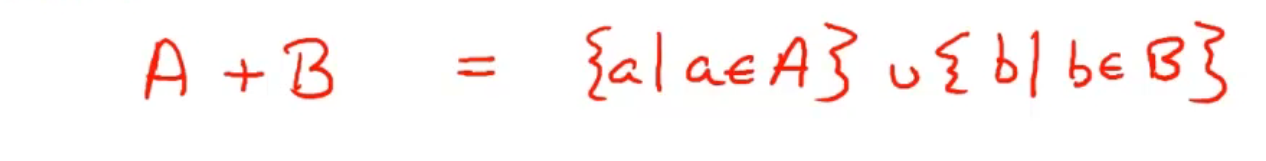 A + B = {a | a ∈ A} ∪ { b | b ∈ B}